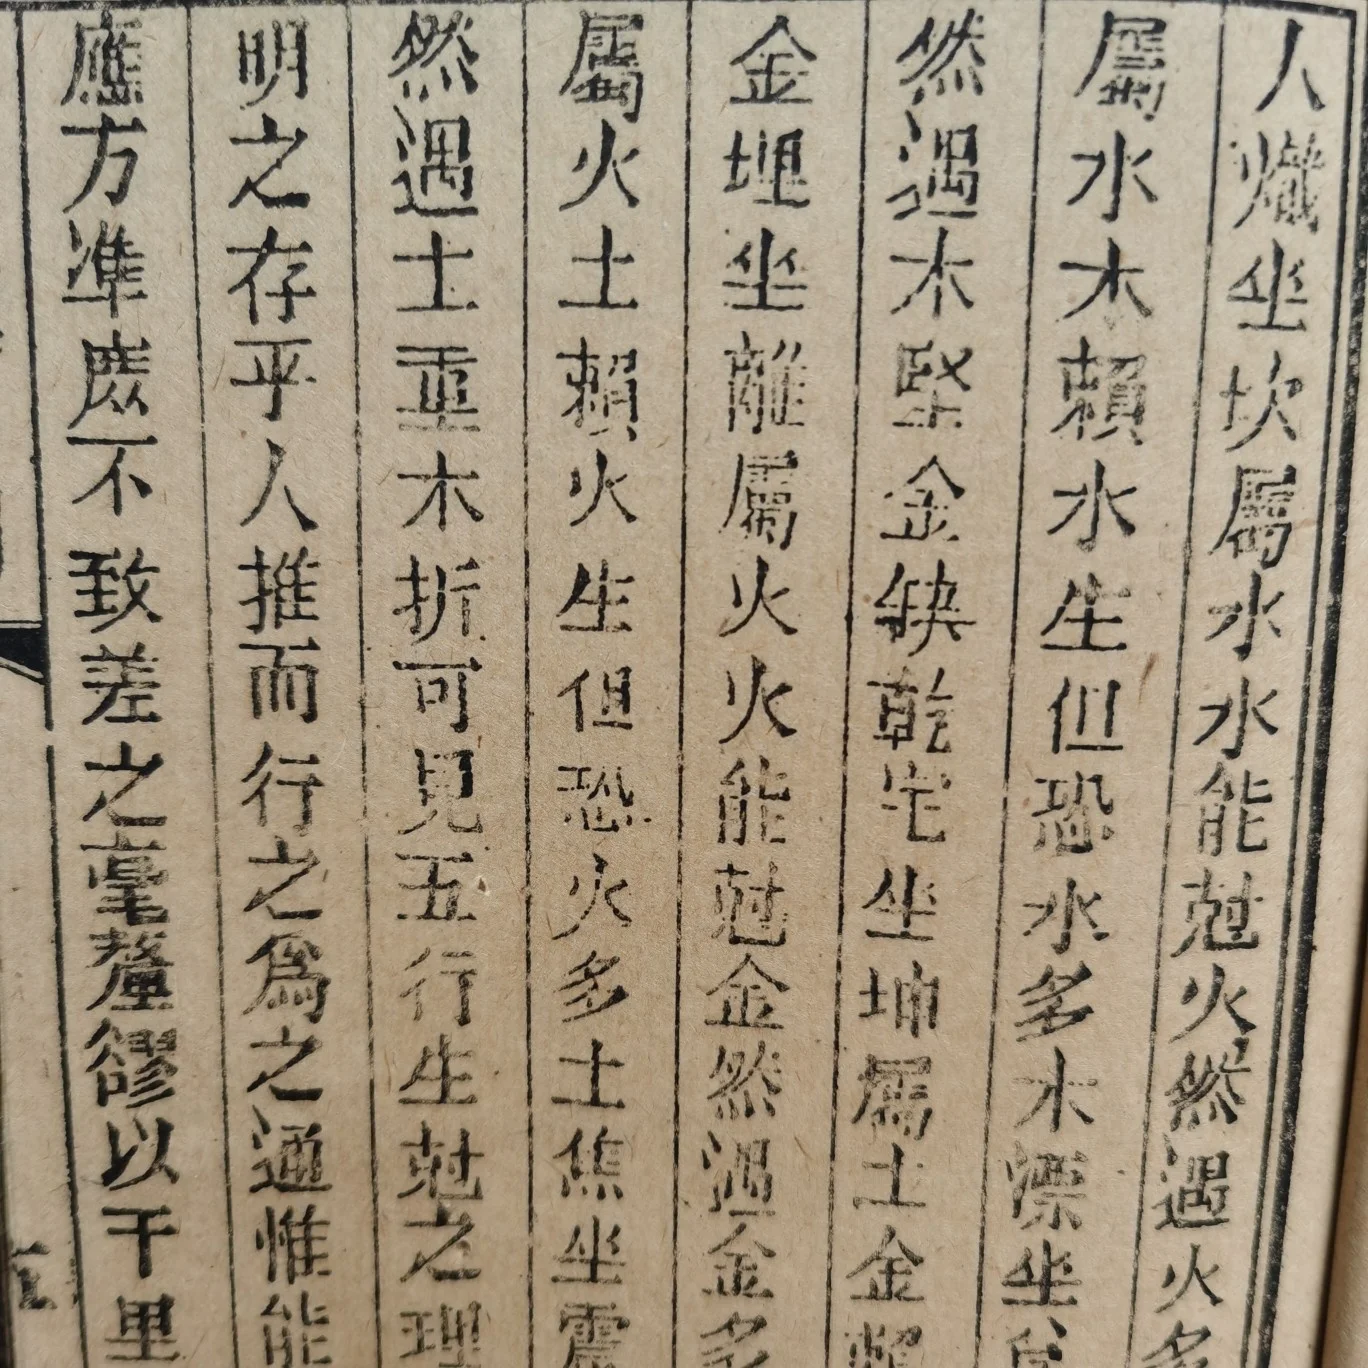 人熾坐坎屬水水能尅火然遇火多
屬水木賴水生但恐水多木漂坐兌
然遇木堅金缺乾宅坐坤屬土金賴
金埋坐離屬火火能尅金然遇金多
屬火土賴火生但恐火多土焦坐震
然遇土重木折可見五行生尅之理
明之存乎人推而行之爲之通惟能
應方準庶不致差之毫釐謬以千里